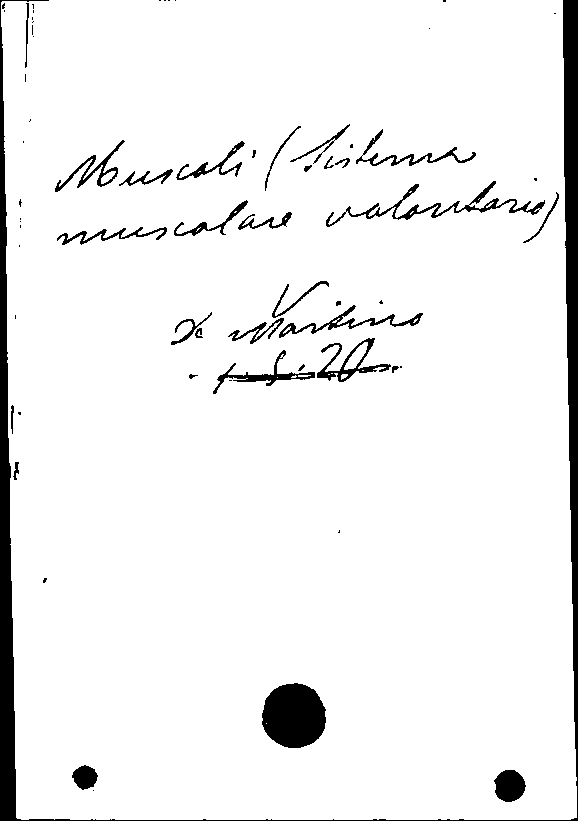 Muscoli (Sistema
muscolare volontario)
De Martino
1.5.20.